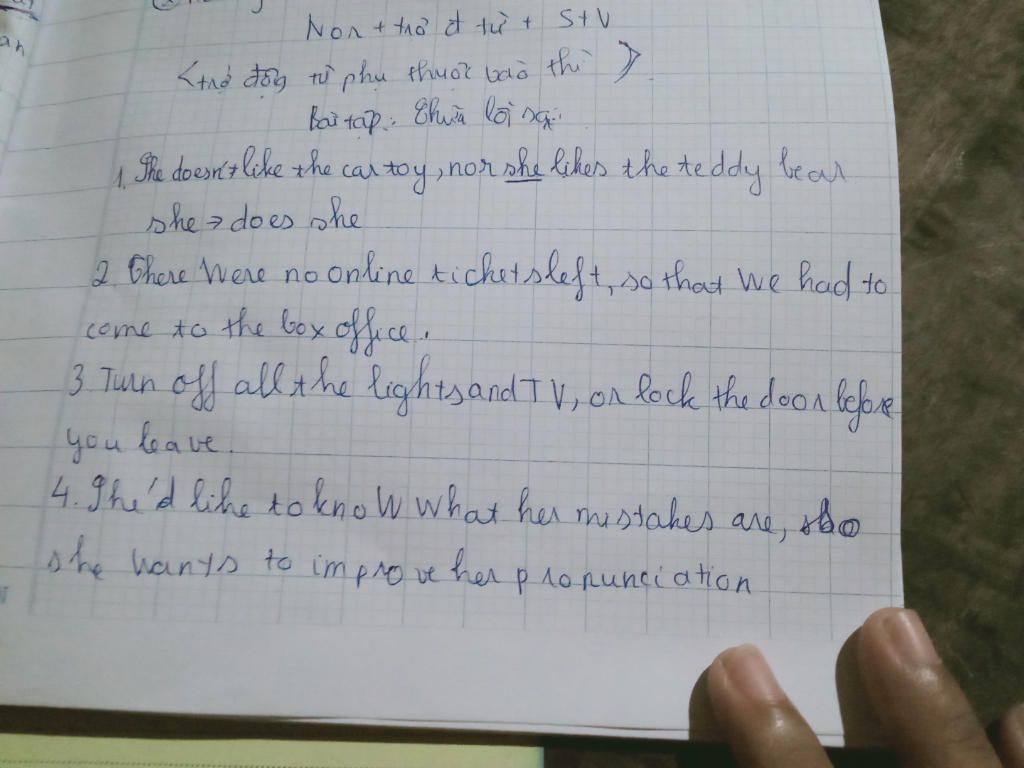 an
Nor + trở đ từ + S+V
<trợ động từ phụ thuộc vào thì>
Bài tập: Chữa lỗi sai:
1. She doesn't like the car toy, nor she likes the teddy bear
she → does she
2. There were no online tickets left, so that we had to
come to the box office.
3. Turn off all the lights and TV, or lock the door before
you leave.
4. She'd like to know what her mistakes are, so
she wants to improve her pronunciation